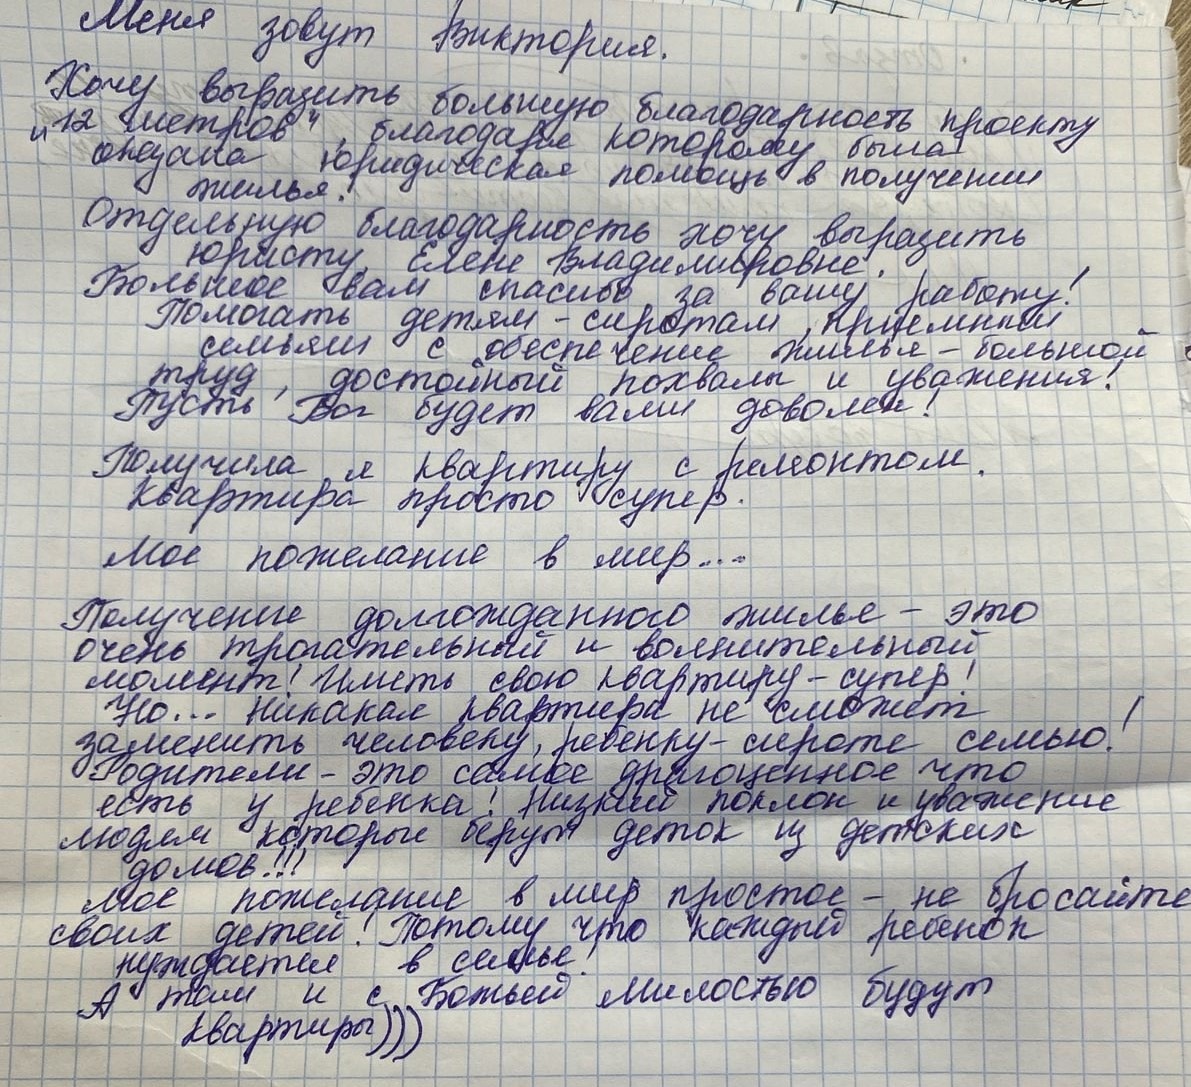 Меня зовут Виктория.
Хочу выразить большую благодарность проекту
"12 метров", благодаря которому была
оказана юридическая помощь в получении
жилья!
Отдельную благодарность хочу выразить
юристу Елене Владимировне.
Большое вам спасибо за вашу работу!
Помогать детям-сиротам, приемным
семьям с обеспечение жилья - большой
труд, достойный похвалы и уважения!
Пусть Бог будет вами доволен!
Получила я квартиру с ремонтом.
Квартира просто супер.
Мое пожелание в мир...
Получение долгожданного жилье - это
очень трогательный и волнительный
момент! Иметь свою квартиру - супер!
Но... Никакая квартира не сможет
заменить человеку, ребенку-сироте семью!
Родители - это самое драгоценное что
есть у ребенка! Низкий поклон и уважение
людям которые берут деток из детских
домов!!!
Мое пожелание в мир простое - не бросайте
своих детей! Потому что каждый ребенок
нуждается в семье!
А там и с Божьей милостью будут
квартиры)))